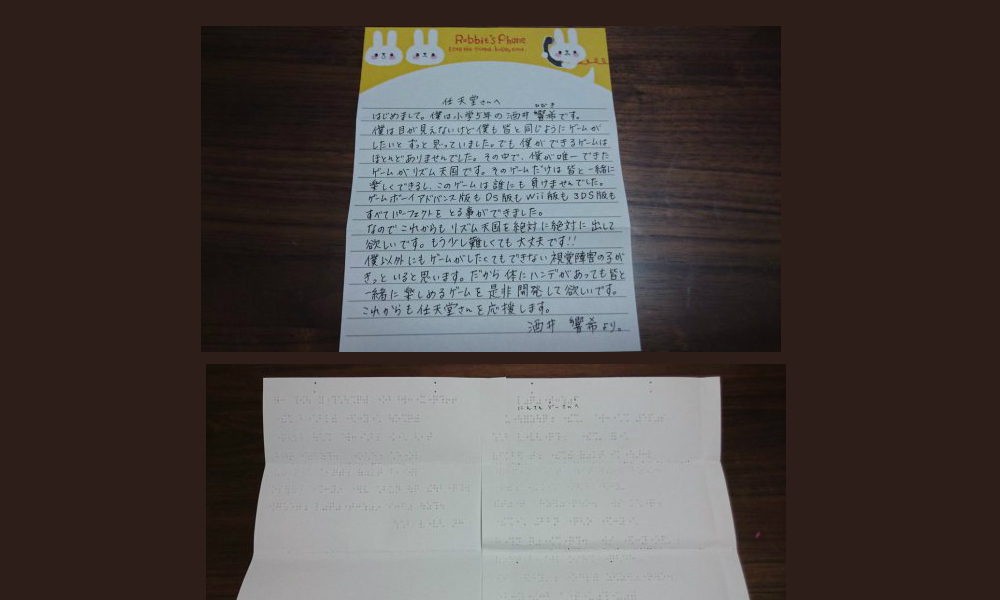 Rabbit's Phone
任天堂さんへ
ひびき
はじめまして。僕は小学5年の酒井響希です。
僕は目が見えないけど僕も皆と同じようにゲームが
したいとずっと思っていました。でも僕ができるゲームは
ほとんどありませんでした。その中で、僕が唯一できた
ゲームがリズム天国です。そのゲームだけは皆と一緒に
楽しくできるし、このゲームは誰にも負けませんでした。
ゲームボーイアドバンス版もDS版もWii版も3DS版も
すべてパーフェクトをとる事ができました。
なのでこれからもリズム天国を絶対に絶対に出して
欲しいです。もう少し難しくても大丈夫です!!
僕以外にもゲームがしたくてもできない視覚障害の子が
きっといると思います。だから体にハンデがあっても皆と
一緒に楽しめるゲームを是非開発して欲しいです。
これからも任天堂さんを応援します。
酒井 響希より。
にんてんどーさんへ